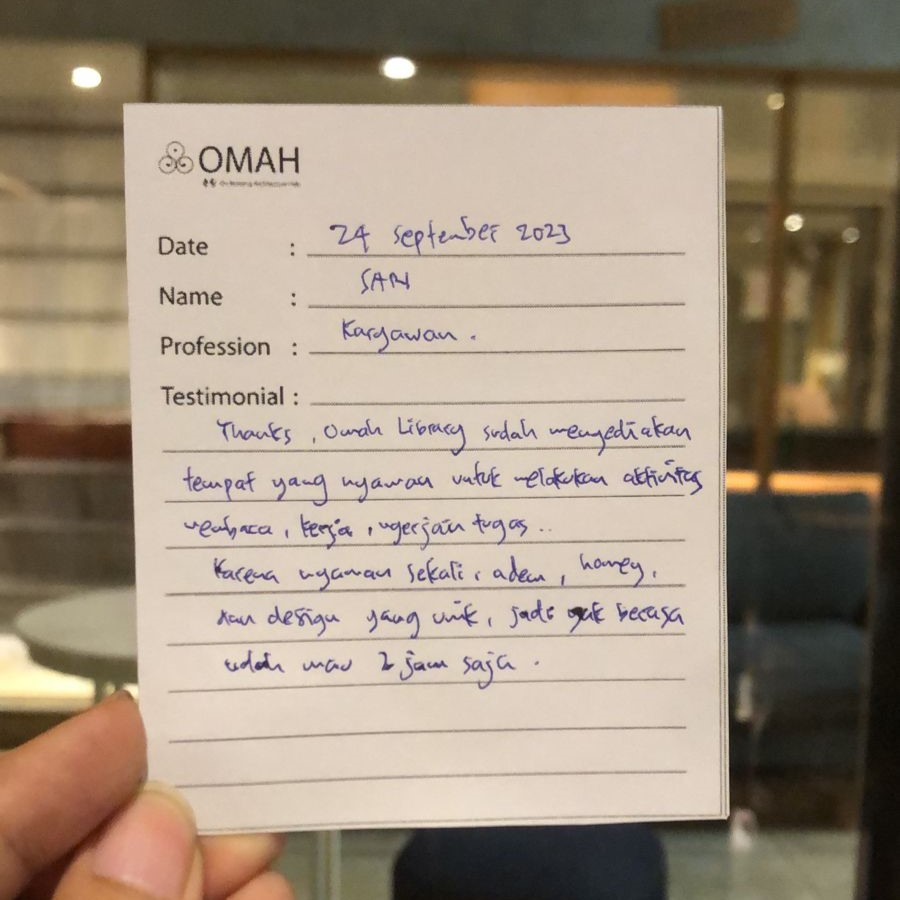 OMAH
Date : 24 September 2023
Name : SAN
Profession : Karyawan.
Testimonial :
Thanks, Omah Library sudah menyediakan
tempat yang nyaman untuk melakukan aktivitas
membaca, kerja, ngerjain tugas..
Karena nyaman sekali, adem, homey,
dan design yang unik, jadi gak berasa
udah mau 2 jam saja.